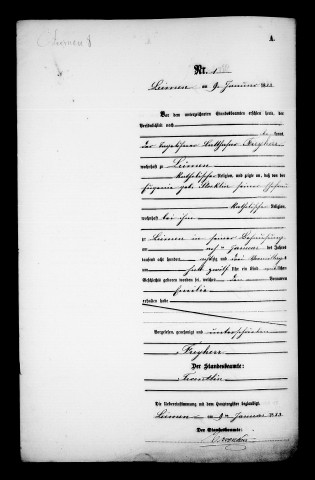 Leimen
A.
Nr. 1
Leimen am 9. Januar 18
Vor dem unterzeichneten Standesbeamten erschien heute, der
Persönlichkeit nach
kannt,
der Balthasar Freyherr
wohnhaft zu Leimen
katholischer Religion, und zeigte an, daß von der
Eugenia geb. Stocklin seiner Ehefrau
katholischer Religion,
wohnhaft bei ihm
zu Leimen in seiner Behausung
am Januar des Jahres
tausend acht hundert achtzig und drei Vormittags
um halb zwölf Uhr ein Kind weiblichen
Geschlechts geboren worden sei, welches den Vornamen
Emilie
erhalten habe
Vorgelesen, genehmigt und unterschrieben
Freyherr
Der Standesbeamte:
Die Uebereinstimmung mit dem Hauptregister beglaubigt.
Leimen am 9. Januar 18
Der Standesbeamte: